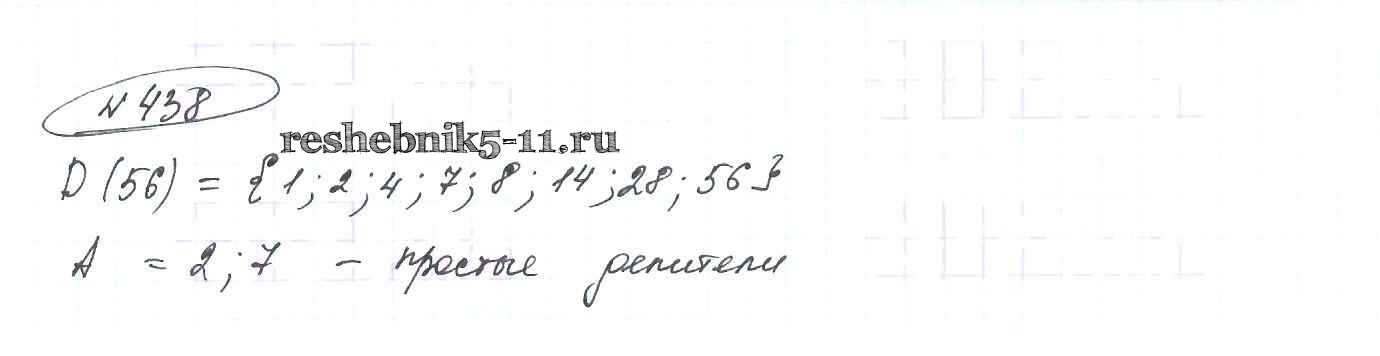 № 438
reshebnik5-11.ru
D (56) = {1; 2; 4; 7; 8; 14; 28; 56}
A = 2; 7 – простые делители